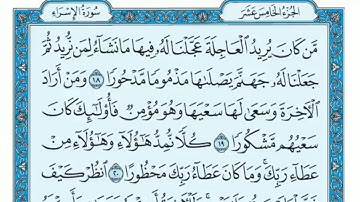 الجزء الخامس عشر
سورة الإسراء
مَّن كَانَ يُرِيدُ ٱلْعَاجِلَةَ عَجَّلْنَا لَهُۥ فِيهَا مَا نَشَآءُ لِمَن نُّرِيدُ ثُمَّ
جَعَلْنَا لَهُۥ جَهَنَّمَ يَصْلَىٰهَا مَذْمُومًا مَّدْحُورًا ١٨ وَمَنْ أَرَادَ
ٱلْءَاخِرَةَ وَسَعَىٰ لَهَا سَعْيَهَا وَهُوَ مُؤْمِنٌ فَأُو۟لَٰٓئِكَ كَانَ
سَعْيُهُم مَّشْكُورًا ١٩ كُلًّا نُّمِدُّ هَٰٓؤُلَآءِ وَهَٰٓؤُلَآءِ مِنْ
عَطَآءِ رَبِّكَ ۚ وَمَا كَانَ عَطَآءُ رَبِّكَ مَحْظُورًا ٢٠ ٱنظُرْ كَيْفَ